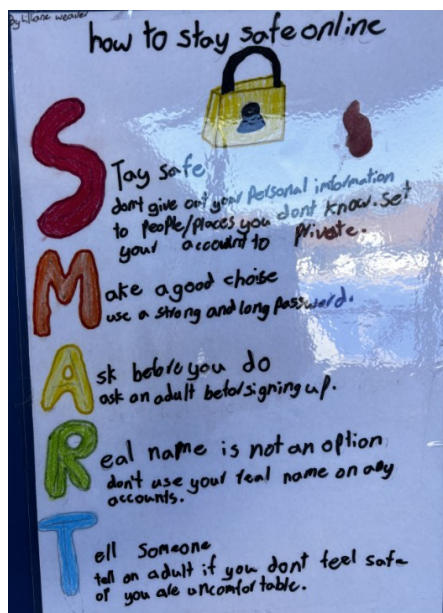 By lilliane weaver
how to stay safe online
Stay safe
dont give out your Personal imformation
to People/places you dont know. set
your account to Private.
Make a good choise
use a strong and long password.
Ask before you do
ask an adult befor signing up.
Real name is not an option
don't use your real name on any
accounts.
Tell Someone
tell an adult if you dont feel safe
or you are uncomfortable.